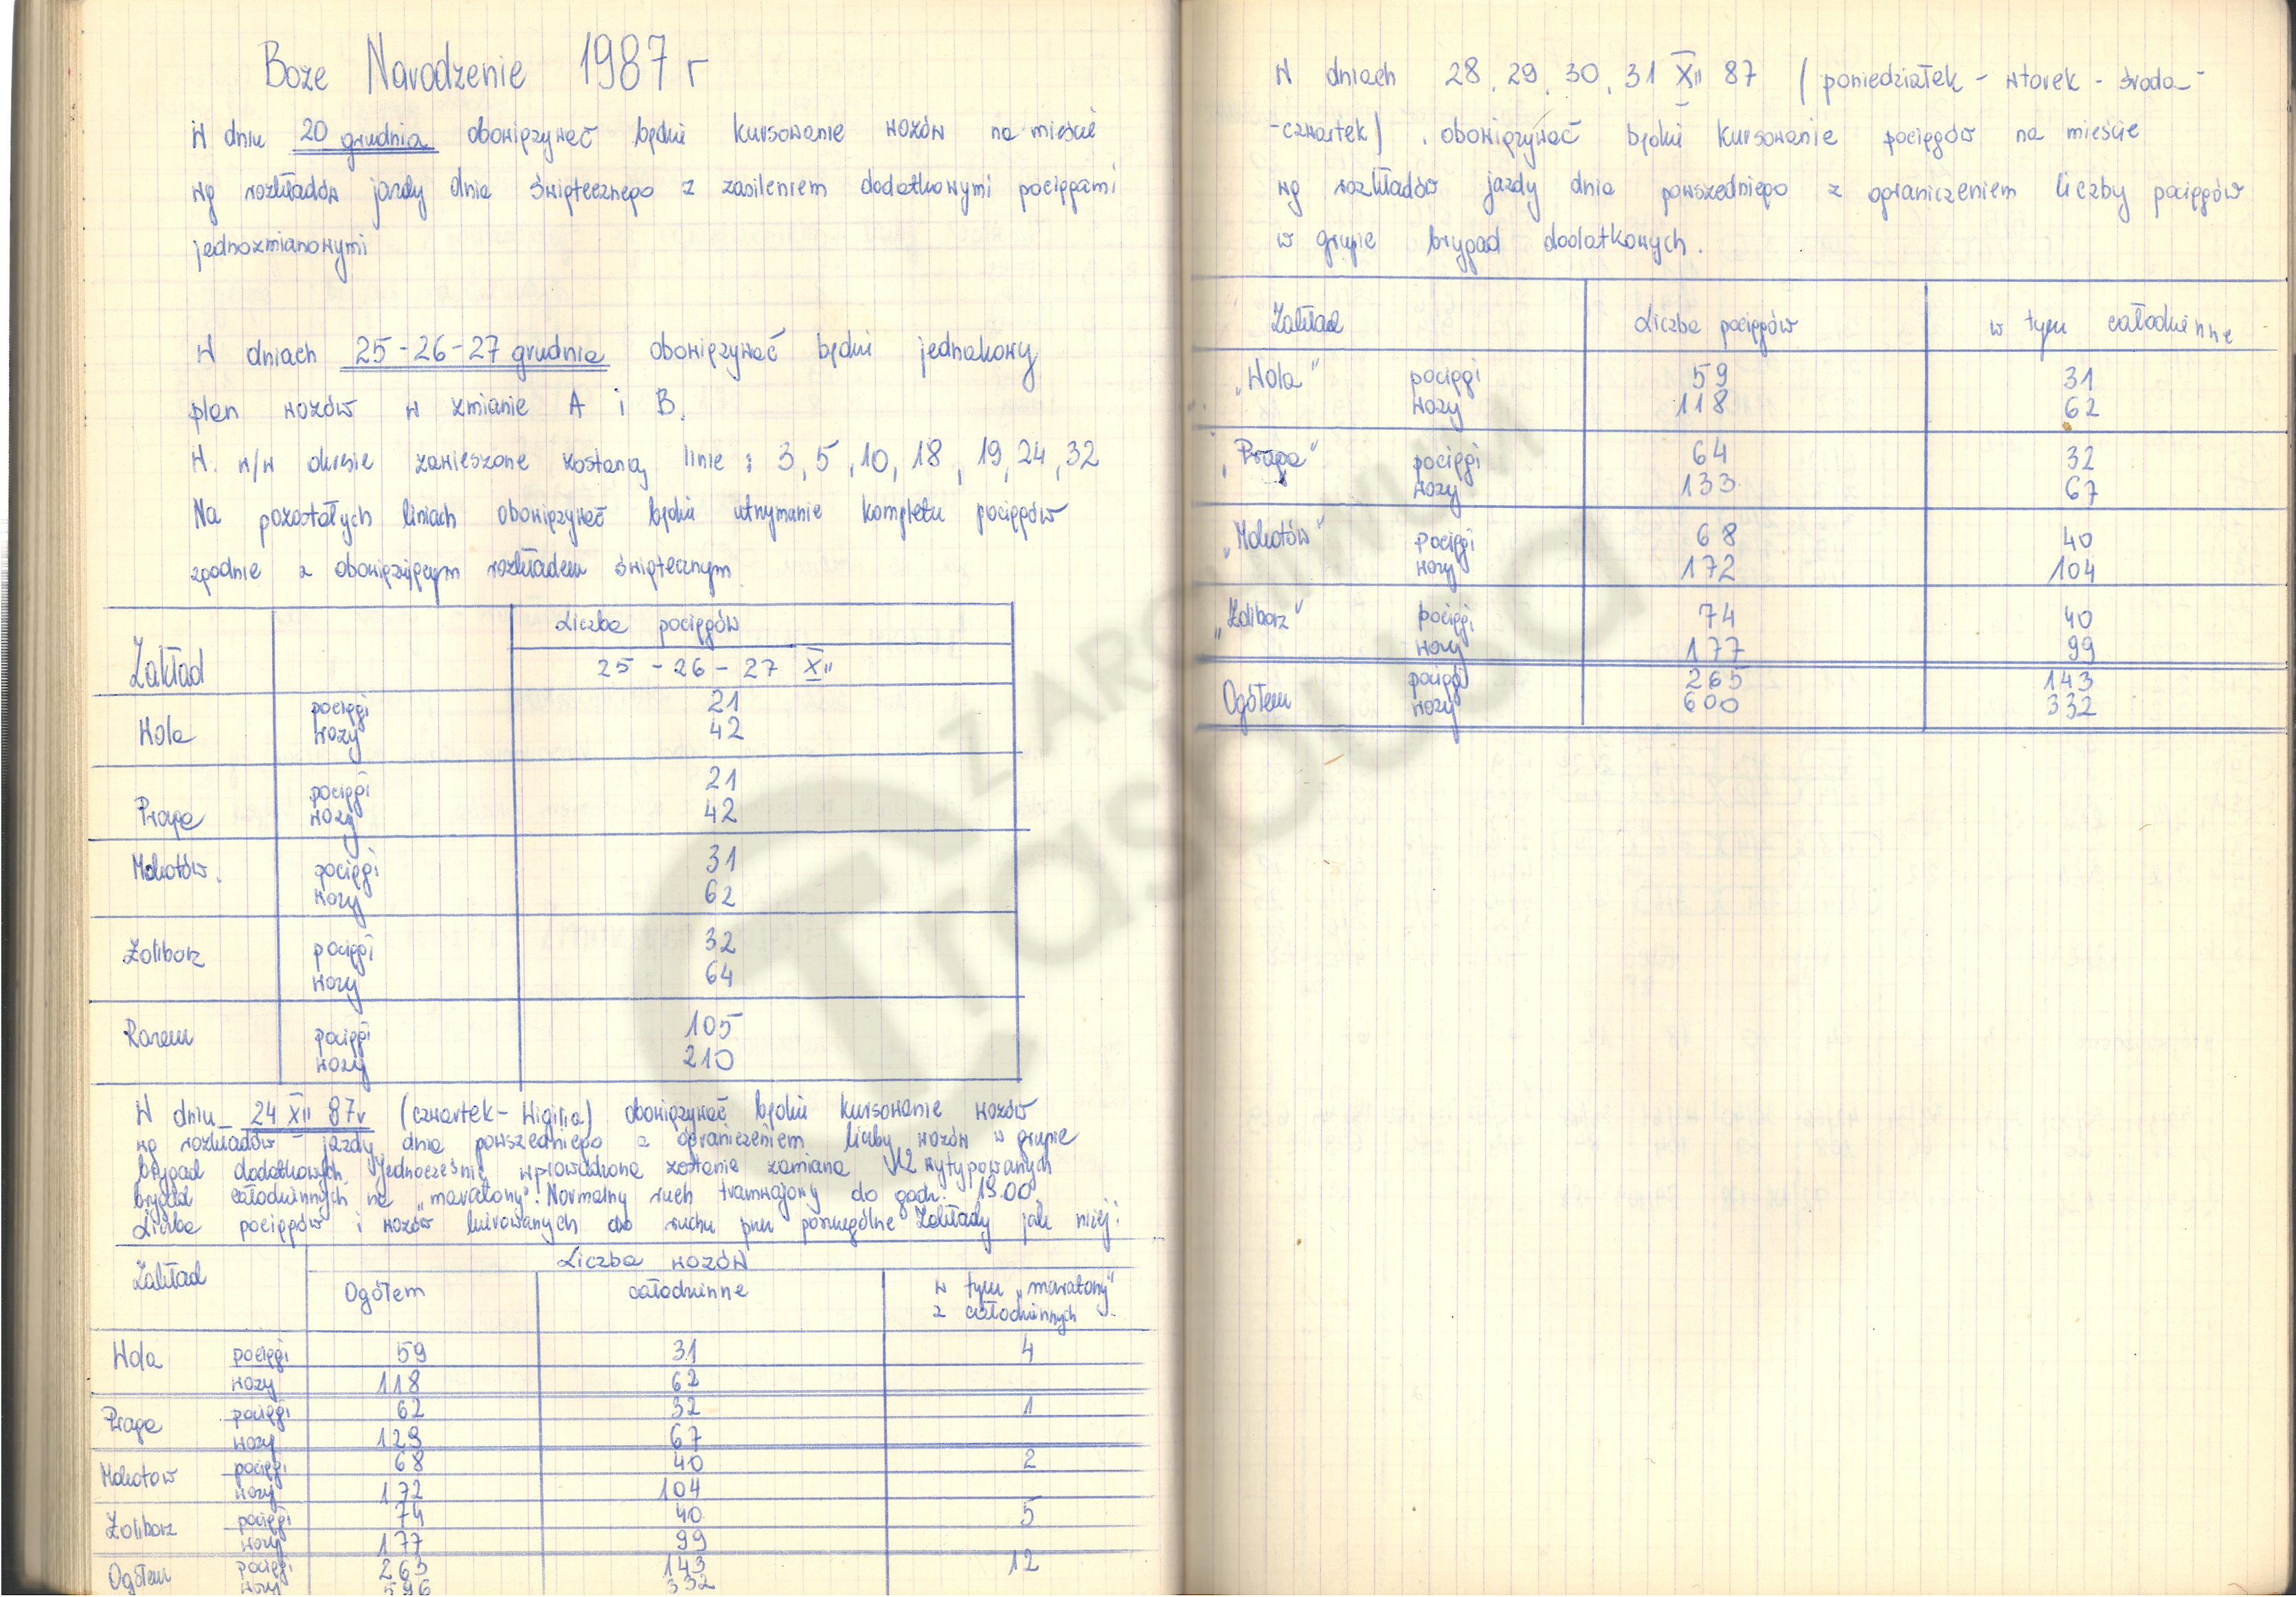 Boże Narodzenie 1987 r
W dniu 20 grudnia obowiązywać będzie kursowanie wozów na mieście
wg rozkładów jazdy dnia świątecznego z zasileniem dodatkowymi pociągami
jednozmianowymi
W dniach 25-26-27 grudnia obowiązywać będzie jednakowy
plan wozów w zmianie A i B.
W. w/w okresie zawieszone zostaną linie : 3, 5, 10, 18, 19, 24, 32
Na pozostałych liniach obowiązywać będzie utrzymanie kompletu pociągów
zgodnie z obowiązującym rozkładem świątecznym
Zakład Liczba pociągów
25 - 26 - 27 XII
Wola pociągi 21
wozy 42
Praga pociągi 21
wozy 42
Mokotów. pociągi 31
wozy 62
Żoliborz pociągi 32
wozy 64
Razem pociągi 105
wozy 210
W dniu 24 XII 87r (czwartek - Wigilia) obowiązywać będzie kursowanie wozów
wg rozkładów jazdy dnia powszedniego z ograniczeniem liczby wozów w grupie
brygad dodatkowych. Jednocześnie wprowadzona zostanie zamiana 12 wytypowanych
brygad całodziennych na "maratony". Normalny ruch tramwajowy do godz. 19.00.
Liczba pociągów i wozów kierowanych do ruchu przez poszczególne Zakłady jak niżej:
Zakład Liczba wozów
Ogółem całodzienne w tym "maratony"
z całodziennych
Wola pociągi 59 31 4
wozy 118 62
Praga pociągi 62 32 1
wozy 129 67
Mokotow pociągi 68 40 2
wozy 172 104
Żoliborz pociągi 74 40 5
wozy 177 99
Ogółem pociągi 263 143 12
wozy 596 332
W dniach 28, 29, 30, 31 XII 87 (poniedziałek - wtorek - środa -
-czwartek) , obowiązywać będzie kursowanie pociągów na mieście
wg rozkładów jazdy dnia powszedniego z ograniczeniem liczby pociągów
w grupie brygad dodatkowych.
Zakład Liczba pociągów w tym całodzienne
"Wola" pociągi 59 31
wozy 118 62
"Praga" pociągi 64 32
wozy 133 67
"Mokotów" pociągi 68 40
wozy 172 104
"Żoliborz" pociągi 74 40
wozy 177 99
Ogółem pociągi 265 143
wozy 600 332
Z ARCHIWUM
Trasbusa